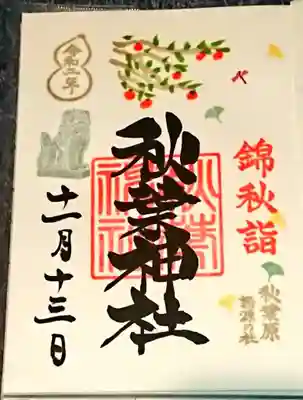 錦秋詣
秋葉原
秋葉神社
令和二年
十一月十三日